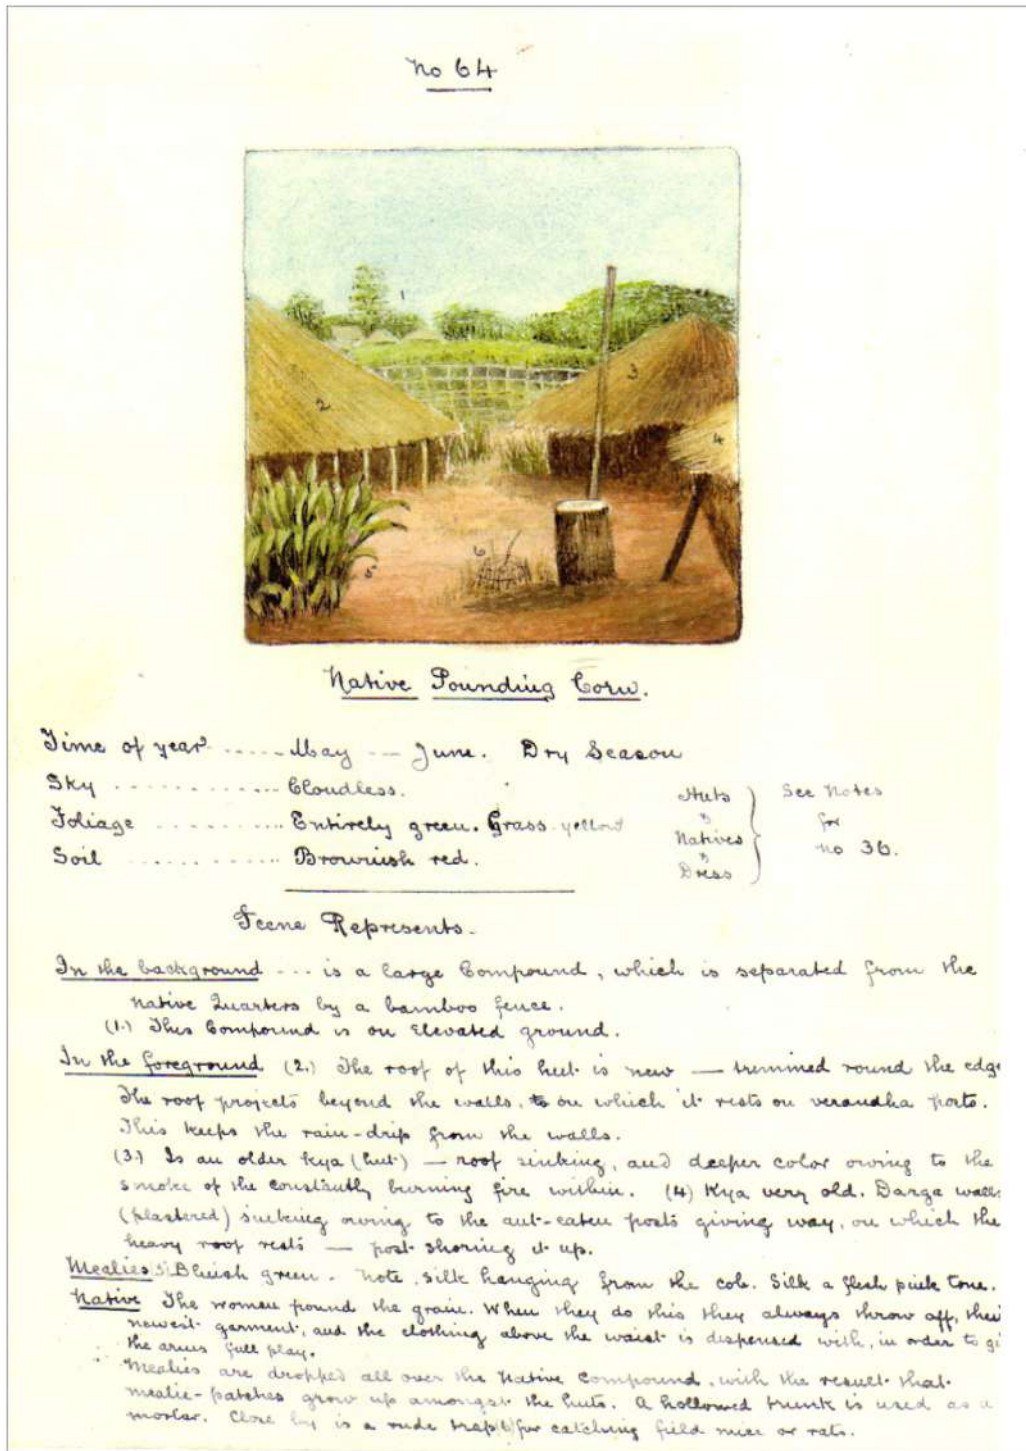 No 64
1
2
3
4
5
6
Native Pounding Corn.
Time of year ..... May --- June. Dry Season
Sky ............ Cloudless.
Foliage .......... Entirely green. Grass yellow
Soil ........... Brownish red.
Huts
"
Natives
"
Dress
See Notes
for
No 36.
Scene Represents.
In the background ... is a large Compound, which is separated from the
Native Quarters by a bamboo fence.
(1.) This Compound is on Elevated ground.
In the foreground (2.) The roof of this hut is new — trimmed round the edge
The roof projects beyond the walls, on which it rests on verandha posts.
This keeps the rain-drip from the walls.
(3.) Is an older Kya (hut) — roof sinking, and deeper color owing to the
smoke of the constantly burning fire within. (4) Kya very old. Darga walls
(plastered) sinking owing to the ant-eaten posts giving way, on which the
heavy roof rests — post shoring it up.
Mealies 5 Bluish green. Note, silk hanging from the cob. Silk a flesh pink tone.
Native The women pound the grain. When they do this they always throw off, thei
newest garment, and the clothing above the waist is dispensed with, in order to gi
the arms full play.
Mealies are dropped all over the Native Compound, with the result that
mealie-patches grow up amongst the huts. A hollowed trunk is used as a
mortar. Close by is a rude trap (6) for catching field mice or rats.